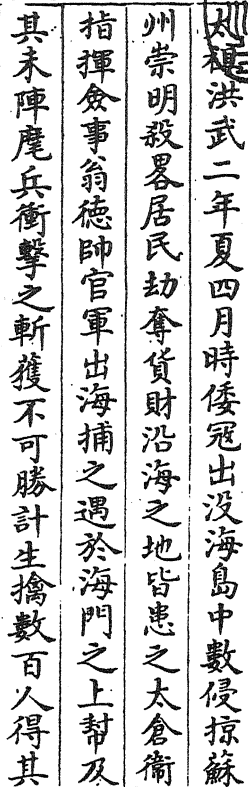 太祖洪武二年夏四月時倭冦出没海島中數侵掠蘇
州崇明殺畧居民劫奪貨財沿海之地皆患之太倉衞
指揮僉事翁德帥官軍出海捕之遇於海門之上幇及
其未陣麾兵衝擊之斬獲不可勝計生擒數百人得其